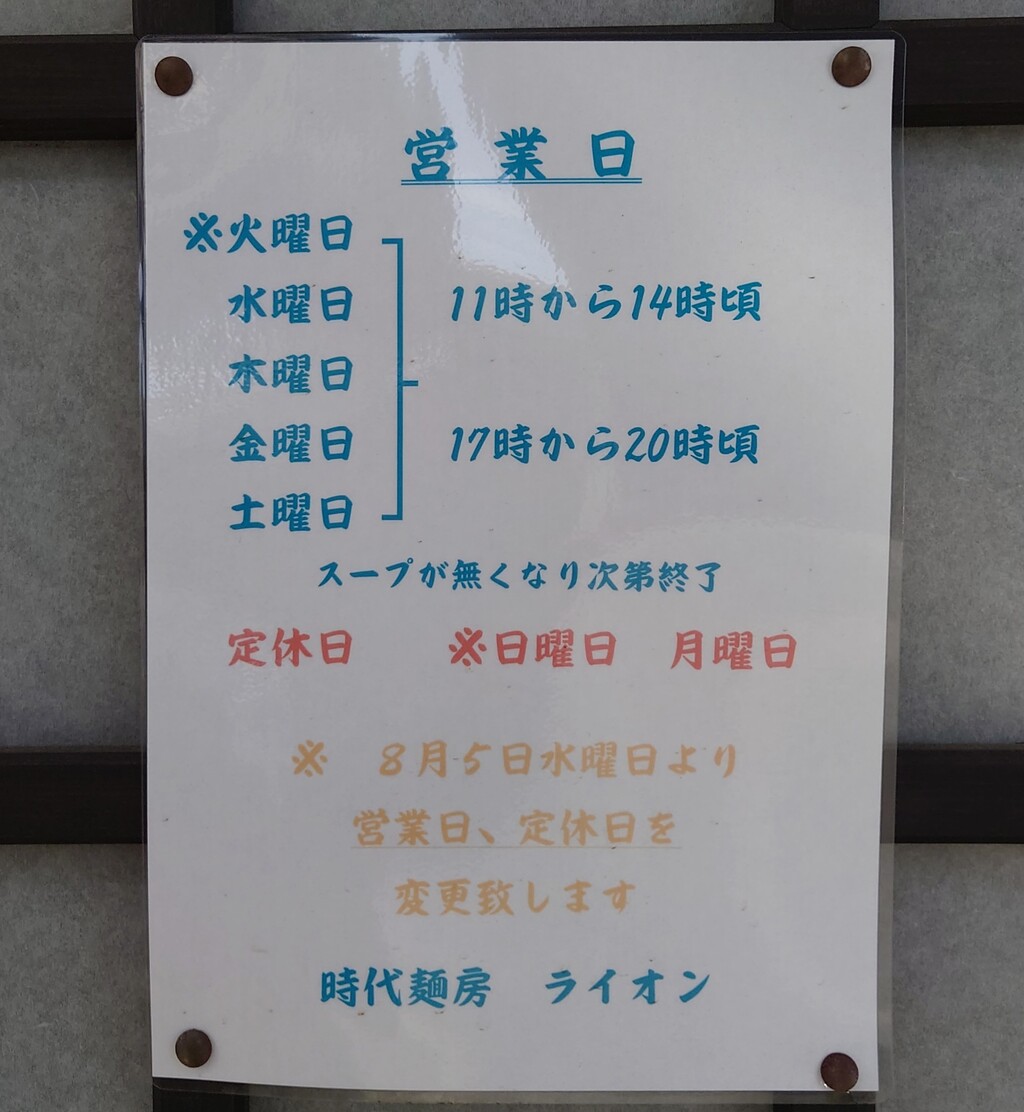 営業日
※火曜日
水曜日
11時から14時頃
木曜日
金曜日
17時から20時頃
土曜日
スープが無くなり次第終了
定休日 ※日曜日 月曜日
※ 8月5日水曜日より
営業日、定休日を
変更致します
時代麺房 ライオン